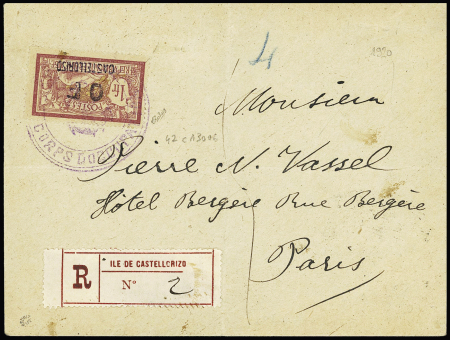 4
1920
CASTELLORIZO
O F
POSTES
1 Fr
CORPS D'OCC
Monsieur
Pierre N. Vassel
Hôtel Bergère Rue Bergère
Paris
R
ILE DE CASTELLORIZO
N° 2